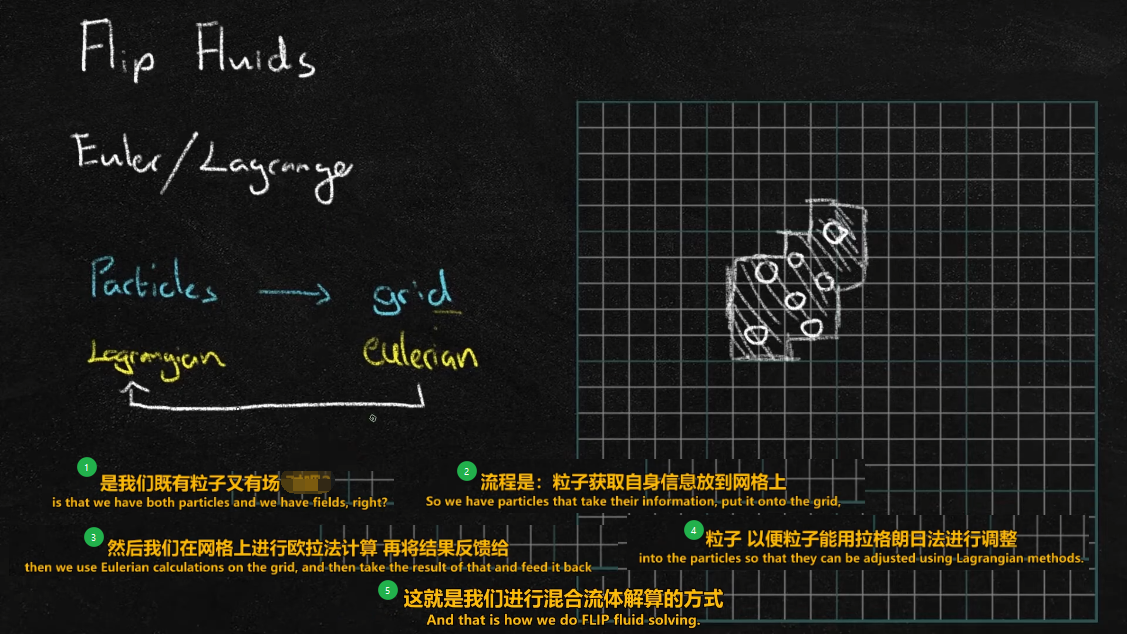 Flip Fluids
Euler/Lagrange
Particles → grid
Lagrangian eulerian
1 是我们既有粒子又有场
is that we have both particles and we have fields, right?
2 流程是：粒子获取自身信息放到网格上
So we have particles that take their information, put it onto the grid,
3 然后我们在网格上进行欧拉法计算 再将结果反馈给
then we use Eulerian calculations on the grid, and then take the result of that and feed it back
4 粒子 以便粒子能用拉格朗日法进行调整
into the particles so that they can be adjusted using Lagrangian methods.
5 这就是我们进行混合流体解算的方式
And that is how we do FLIP fluid solving.